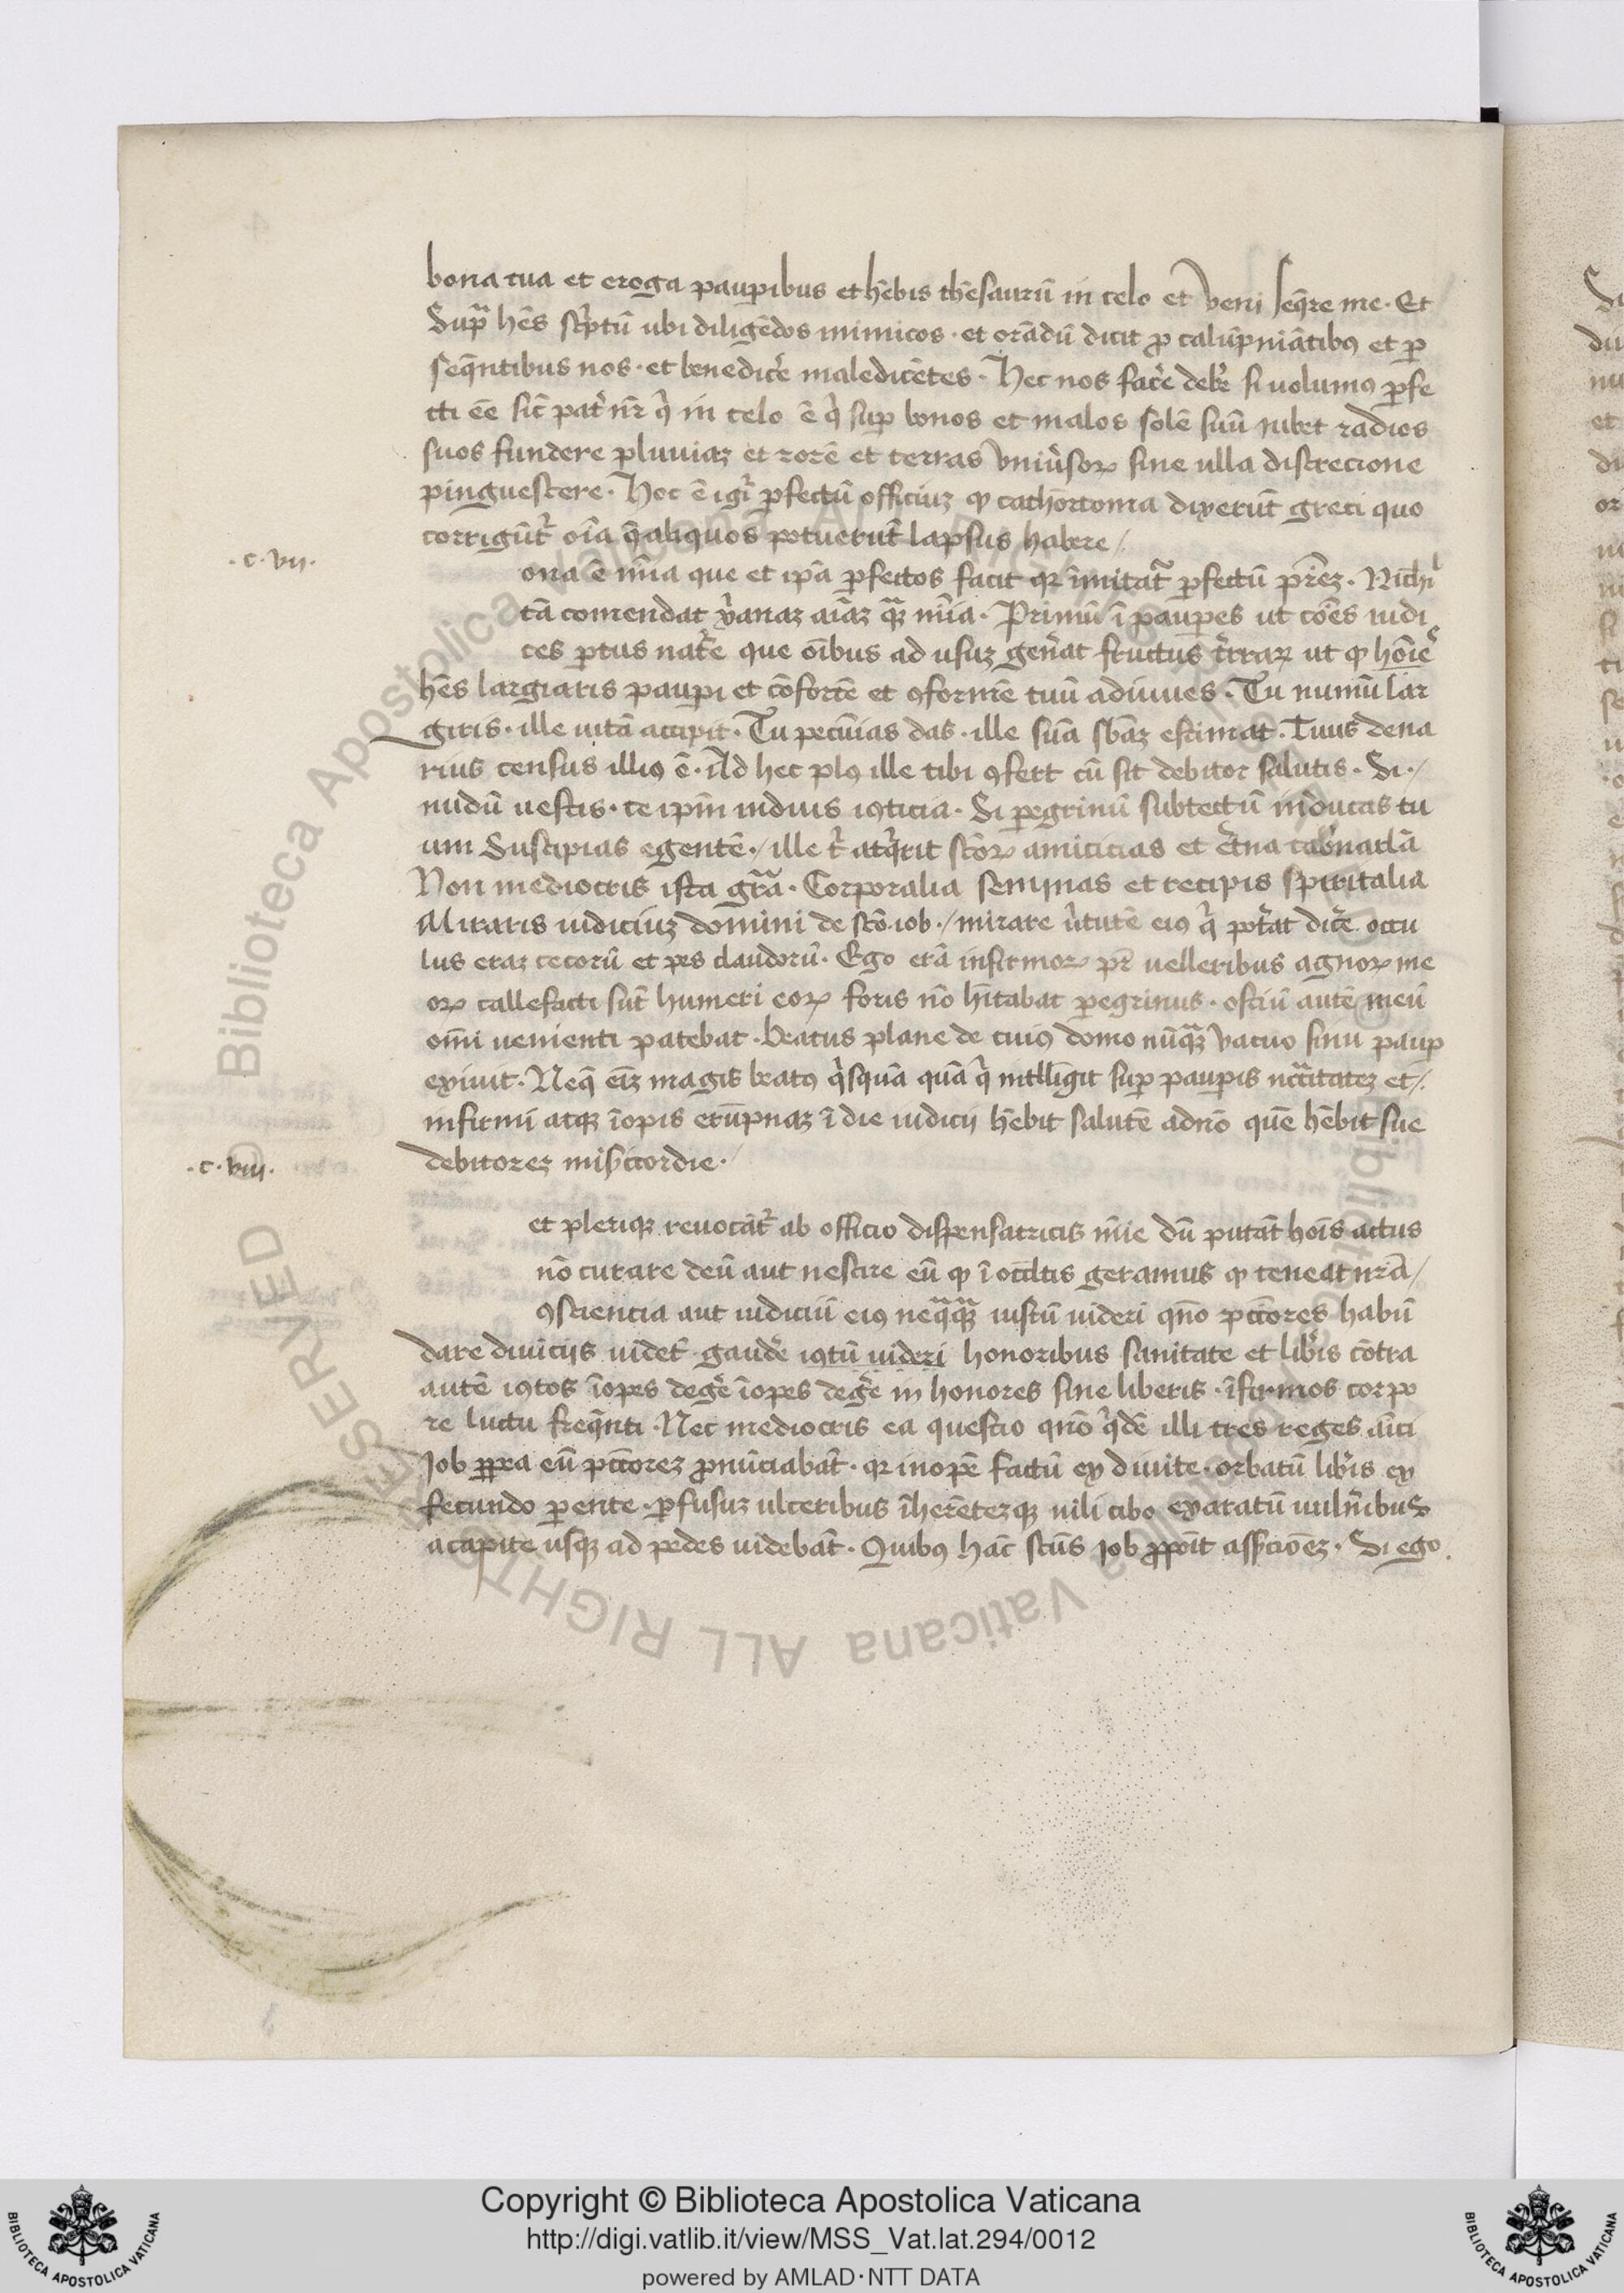 bona tua et eroga paupibus et hēbis thēsaurū in celo et veni seq̄re me · Et
Supᵃ hēs scͥptū ubi diligēdos inimicos · et orādū dicit ꝓ calūpniātibꝯ et ꝑ
seq̄ntibus nos · et benedice᷑ maledicētes · Hec nos face᷑ debe᷑ si uolumꝯ ꝑfe
cti eē sic̄ pat᷑ nr̄ qͥ in celo ē qͥ suꝑ bonos et malos solē suū iubet radios
suos fundere pluuiaꝫ et rorē et terras vniu᷑soꝝ sine ulla discrecione
pinguescere · Hoc ē igͥ ꝑfectū officiuꝫ ꝙ cathortoma dixerūt greci quo
corrigūt᷑ oīa q̄ aliquos potuerūt lapsus habere /
· c · vii ·
ona ē mīa que et ipā ꝑfectos facit qꝛ īmitat᷑ ꝑfectū pr̄eꝫ · Nichil
tā comendat xͥanaꝫ aīaꝫ qᵃꝫ mīa · Primū ī pauꝑes ut cōes iudi
ces ꝑtus nat᷑e que oībus ad usuꝫ gen᷑at fructus t᷑rarꝝ ut ꝙ hōīe
hēs largiaris pauꝑi et cōfortē et ꝯformē tuū adiuues · Tu numū lar
giris · ille uitā accipit · Tu pecūias das · ille suā sb̄aꝫ estimat · Tuus dena
rius census illiꝯ ē · Ad hec plꝯ ille tibi ꝯfert cū sit debitor salutis · Si · /
nudū uestis · te ipm̄ induis iꝯticia · Si ꝑegrinū subtectū inducas tu
um Suscipias egentē · / ille t᷑ atqͥrit sc̄oꝝ amicicias et et᷑na tab᷑nacla
Non mediocris ista gr̄a · Corporalia seminas et recipis spiritalia
Miraris iudiciuꝫ domini de sc̄o iob · / mirare u᷑tutē eiꝯ qͥ pot᷑at dice᷑ occu
lus eraꝫ cecorū et pes claudorū · Ego erā infirmoꝝ pr̄ uelleribus agnoꝝ me
oꝝ callefacti sūt humeri eoꝝ foris nō hītabat ꝑegrinus · ostiū autē meū
om̄i uenienti patebat · Beatus plane de cuiꝯ domo nūqᵃꝫ vacuo sinu pauꝑ
exiuit · Neq̄ eīꝫ magis beatꝯ qͥsquā quā qͥ intlligit suꝑ pauꝑis nc̄citateꝫ et / ·
infirmi atqꝫ īopis erūpnaꝫ ī die iudicij hēbit salutē adnō quē hēbit sue
· c · viii ·
debitoreꝫ miscͥcordie · /
et pleriqꝫ reuocāt᷑ ab officio dispensatricis mīe dū putāt hoīs actus
nō curare deū aut nescire eū ꝙ ī occltis geramus ꝙ teneat nr̄a /
ꝯsciencia aut iudiciū eiꝯ neqᵃqᵃꝫ iustū uideri qn̄o pccōres habū
dare diuicijs uidet᷑ gaude᷑ iꝯtū uideri honoribus sanitate et lib᷑is cōtra
autē iꝯtos īopes dege᷑ īopes dege᷑ in honores sine liberis · īfirmos corpo
re luctu freq̄nti · Nec mediocris ea questio qn̄o qͥdē illi tres reges aīci
Iob ꝓpͥa eū pccōreꝫ ꝓnūciabāt · qꝛ inopē factū ex diuite · orbatū lib᷑is ex
fecundo ꝑente · ꝑfusuꝫ ulceribus īherēteꝫqꝫ uili cibo exaratū uuln᷑ibus
a capite usqꝫ ad pedes uidebāt · Quibꝯ hāc sc̄us Iob ꝓpōīt assͥcioēꝫ · Si ego
Copyright © Biblioteca Apostolica Vaticana
http://digi.vatlib.it/view/MSS_Vat.lat.294/0012
powered by AMLAD·NTT DATA